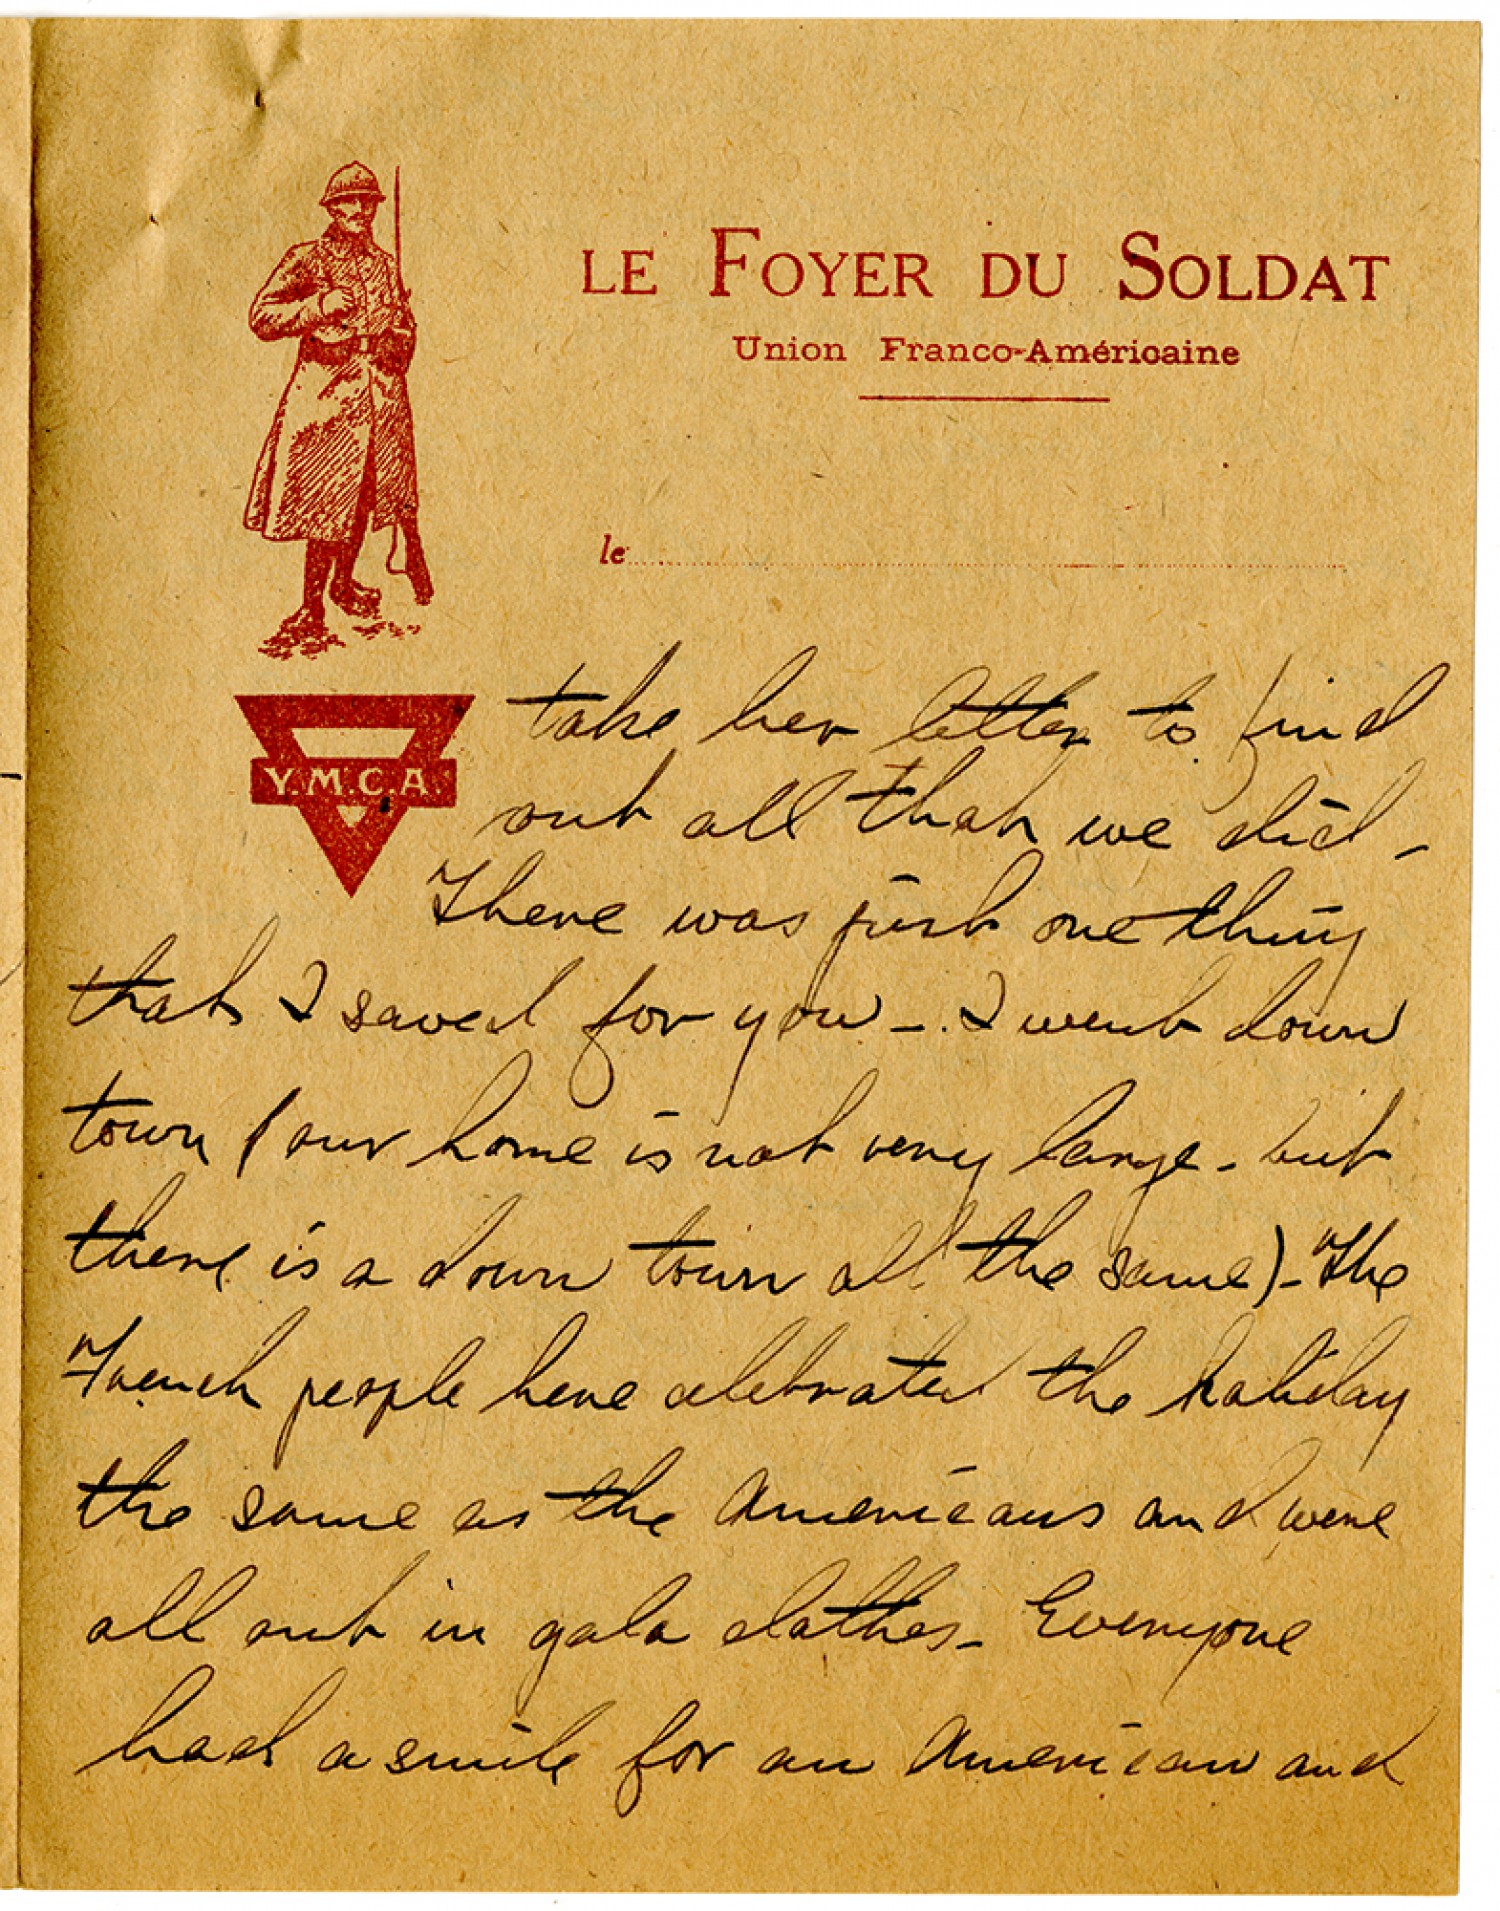 LE FOYER DU SOLDAT
Union Franco-Américaine
le
Y.M.C.A
take her letter to find
out all that we did -
There was just one thing
that I saved for you - I went down
town (our home is not very large - but
there is a down town all the same) - The
French people here celebrated the holiday
the same as the Americans and were
all out in gala clothes - Everyone
had a smile for an American and